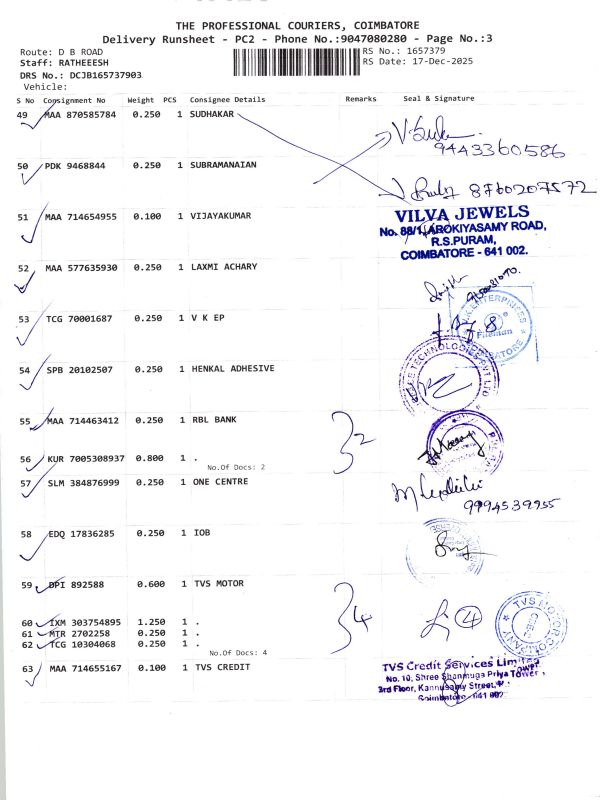 THE PROFESSIONAL COURIERS, COIMBATORE
Delivery Runsheet - PC2 - Phone No.:9047080280 - Page No.:3
Route: D B ROAD RS No.: 1657379
Staff: RATHEEESH RS Date: 17-Dec-2025
DRS No.: DCJB165737903
Vehicle:
S No Consignment No Weight PCS Consignee Details Remarks Seal & Signature
49 MAA 870585784 0.250 1 SUDHAKAR
9443360586
50 PDK 9468844 0.250 1 SUBRAMANAIAN
8760207572
51 MAA 714654955 0.100 1 VIJAYAKUMAR
VILVA JEWELS
No. 88/1, AROKIYASAMY ROAD,
R.S.PURAM,
COIMBATORE - 641 002.
52 MAA 577635930 0.250 1 LAXMI ACHARY
53 TCG 70001687 0.250 1 V K EP
ENTERPRISES
54 SPB 20102507 0.250 1 HENKAL ADHESIVE
TECHNOLOGIES PVT LTD
55 MAA 714463412 0.250 1 RBL BANK
32
56 KUR 7005308937 0.800 1 .
No.Of Docs: 2
57 SLM 384876999 0.250 1 ONE CENTRE
9994539955
58 EDQ 17836285 0.250 1 IOB
59 DPI 892588 0.600 1 TVS MOTOR
34
4
TVS MOTOR COMPANY
60 IXM 303754895 1.250 1 .
61 MTR 2702258 0.250 1 .
62 TCG 10304068 0.250 1 .
No.Of Docs: 4
63 MAA 714655167 0.100 1 TVS CREDIT
TVS Credit Services Limited
No. 10, Shree Shanmuga Priya Tower,
3rd Floor, Kannusamy Street,
Coimbatore - 641 002